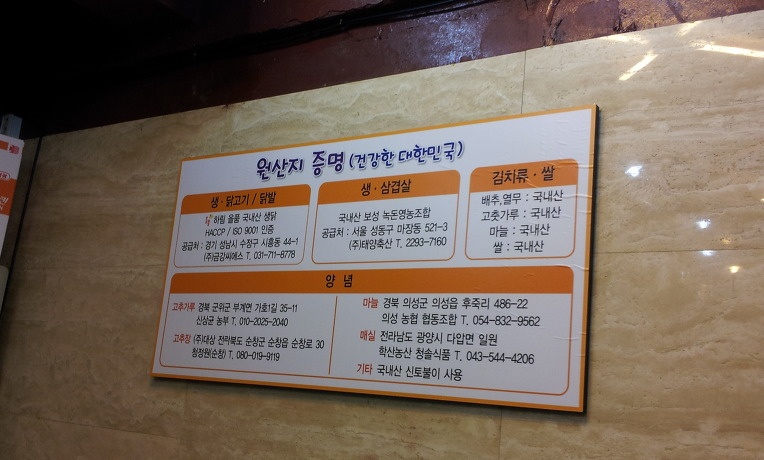 원산지 증명 (건강한 대한민국)
생·닭고기 / 닭발
하림 올품 국내산 생닭
HACCP / ISO 9001 인증
공급처 : 경기 성남시 수정구 시흥동 44-1
(주)금강씨에스 T. 031-711-8778
생·삼겹살
국내산 보성 녹돈영농조합
공급처 : 서울 성동구 마장동 521-3
(주)태양축산 T. 2293-7160
김치류·쌀
배추,열무 : 국내산
고춧가루 : 국내산
마늘 : 국내산
쌀 : 국내산
양 념
고추가루 경북 군위군 부계면 가호1길 35-11
신상균 농부 T. 010-2025-2040
고추장 (주)대상 전라북도 순창군 순창읍 순창로 30
청정원(순창) T. 080-019-9119
마늘 경북 의성군 의성읍 후죽리 486-22
의성 농협 협동조합 T. 054-832-9562
매실 전라남도 광양시 다압면 일원
학산농산 청솔식품 T. 043-544-4206
기타 국내산 신토불이 사용